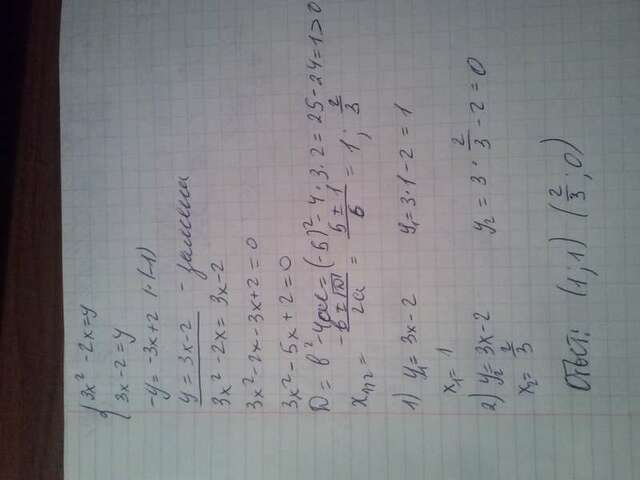 3x² - 2x = y
3x - 2 = y
-y = -3x + 2 | · (-1)
y = 3x - 2 - замена
3x² - 2x = 3x - 2
3x² - 2x - 3x + 2 = 0
3x² - 5x + 2 = 0
D = b² - 4ac = (-5)² - 4 · 3 · 2 = 25 - 24 = 1 > 0
x₁,₂ = (-b ± √D)/2a = (5 ± 1)/6 = 1; 2/3
1) y₁ = 3x - 2 y₁ = 3 · 1 - 2 = 1
x₁ = 1
2) y₂ = 3x - 2 y₂ = 3 · 2/3 - 2 = 0
x₂ = 2/3
Ответ: (1; 1) (2/3; 0)